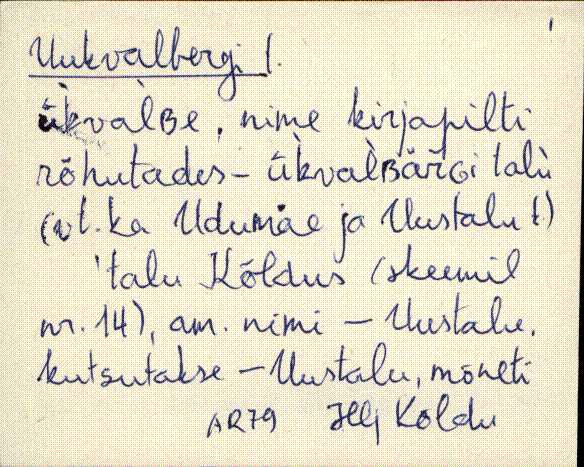 Uukvalbergi t.
ükvàlʙe, nime kirjapilti
rõhutades – ükvalʙärɢi talù
(vt. ka Udumäe ja Uustalu t.)
'talu Kõldus (skeemil
nr. 14), am. nimi – Uustalu,
kutsutakse – Uustalu, mõneti
AR79 Koldu